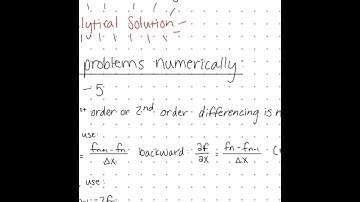 lytical Solution
problems numerically:
-5
order or 2nd order differencing is n
use:
= fn+1 - fn / Δx backward: ∂f/∂x = fn - fn-1 / Δx
use: